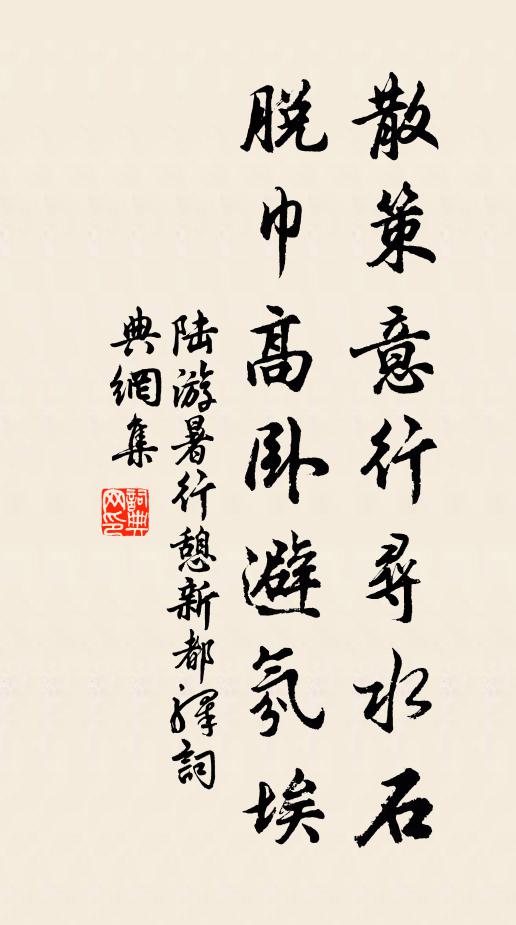 散策意行尋水石
脱巾高卧避氛埃
陆游暑行憩新都驛詞
典網集
詞典
网印